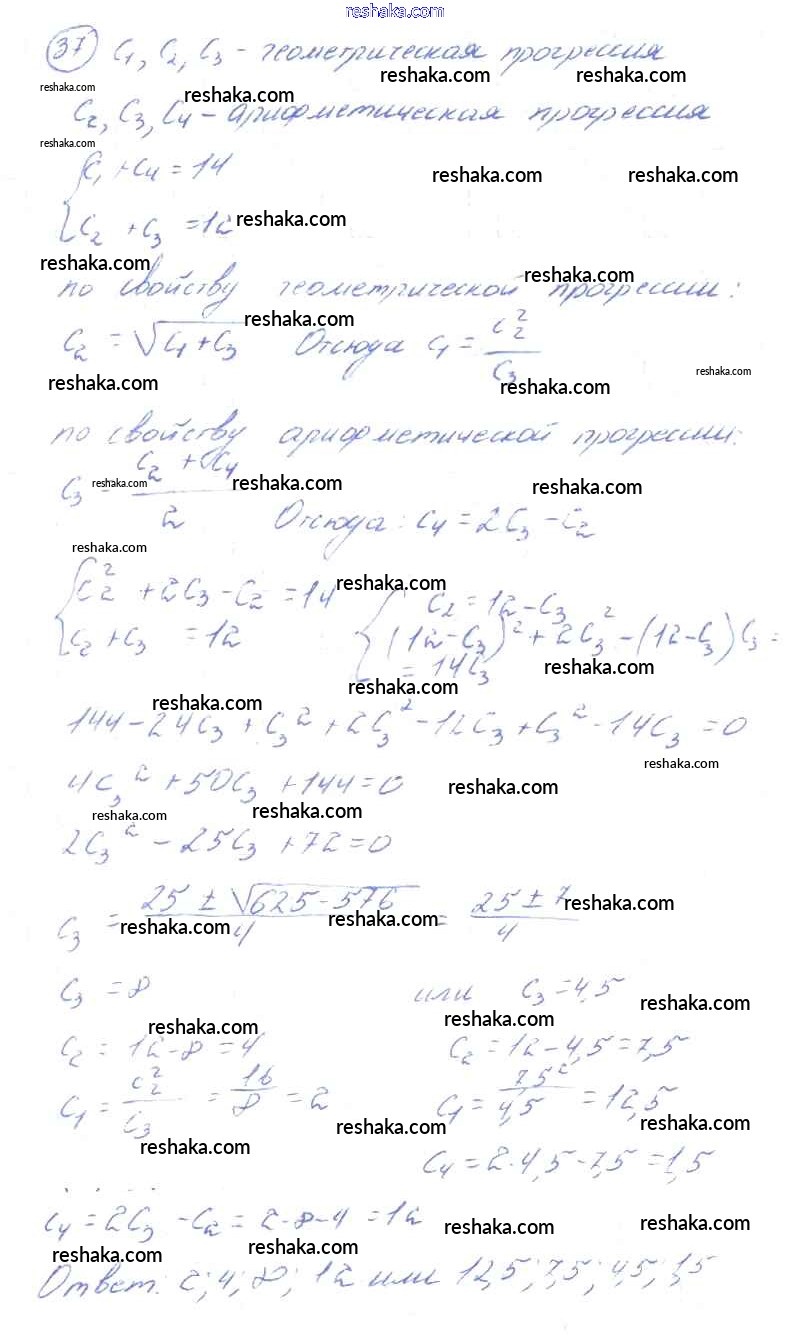 reshaka.com
37 C₁, C₂, C₃ - геометрическая прогрессия
reshaka.com reshaka.com reshaka.com reshaka.com
C₂, C₃, C₄ - арифметическая прогрессия
reshaka.com
C₁ + C₄ = 14
reshaka.com reshaka.com
C₂ + C₃ = 12 reshaka.com
reshaka.com reshaka.com
по свойству геометрической прогрессии:
reshaka.com
C₂ = √C₁+C₃ Отсюда C₁ = C₂²/C₃
reshaka.com reshaka.com reshaka.com
по свойству арифметической прогрессии:
C₃ = (C₂ + C₄)/2 Отсюда: C₄ = 2C₃ - C₂
reshaka.com reshaka.com reshaka.com
reshaka.com reshaka.com
C₂² + 2C₃ - C₂ = 14 C₂ = 12 - C₃
C₂ + C₃ = 12 (12 - C₃)² + 2C₃² - (12 - C₃)C₃ =
= 14C₃ reshaka.com
reshaka.com reshaka.com
144 - 24C₃ + C₃² + 2C₃² - 12C₃ + C₃² - 14C₃ = 0
reshaka.com
4C₃² + 50C₃ + 144 = 0 reshaka.com
reshaka.com reshaka.com
2C₃² - 25C₃ + 72 = 0
C₃ = (25 ± √625-576)/4 = (25 ± 7)/4
reshaka.com reshaka.com reshaka.com
C₃ = 8 или C₃ = 4,5
reshaka.com reshaka.com reshaka.com
C₂ = 12 - 8 = 4 C₂ = 12 - 4,5 = 7,5
C₁ = C₂²/C₃ = 16/8 = 2 C₁ = 7,5²/4,5 = 12,5
reshaka.com reshaka.com reshaka.com
C₄ = 2·4,5 - 7,5 = 1,5
C₄ = 2C₃ - C₂ = 2·8 - 4 = 12
reshaka.com reshaka.com reshaka.com reshaka.com
Ответ: 2; 4; 8; 12 или 12,5; 7,5; 4,5; 1,5